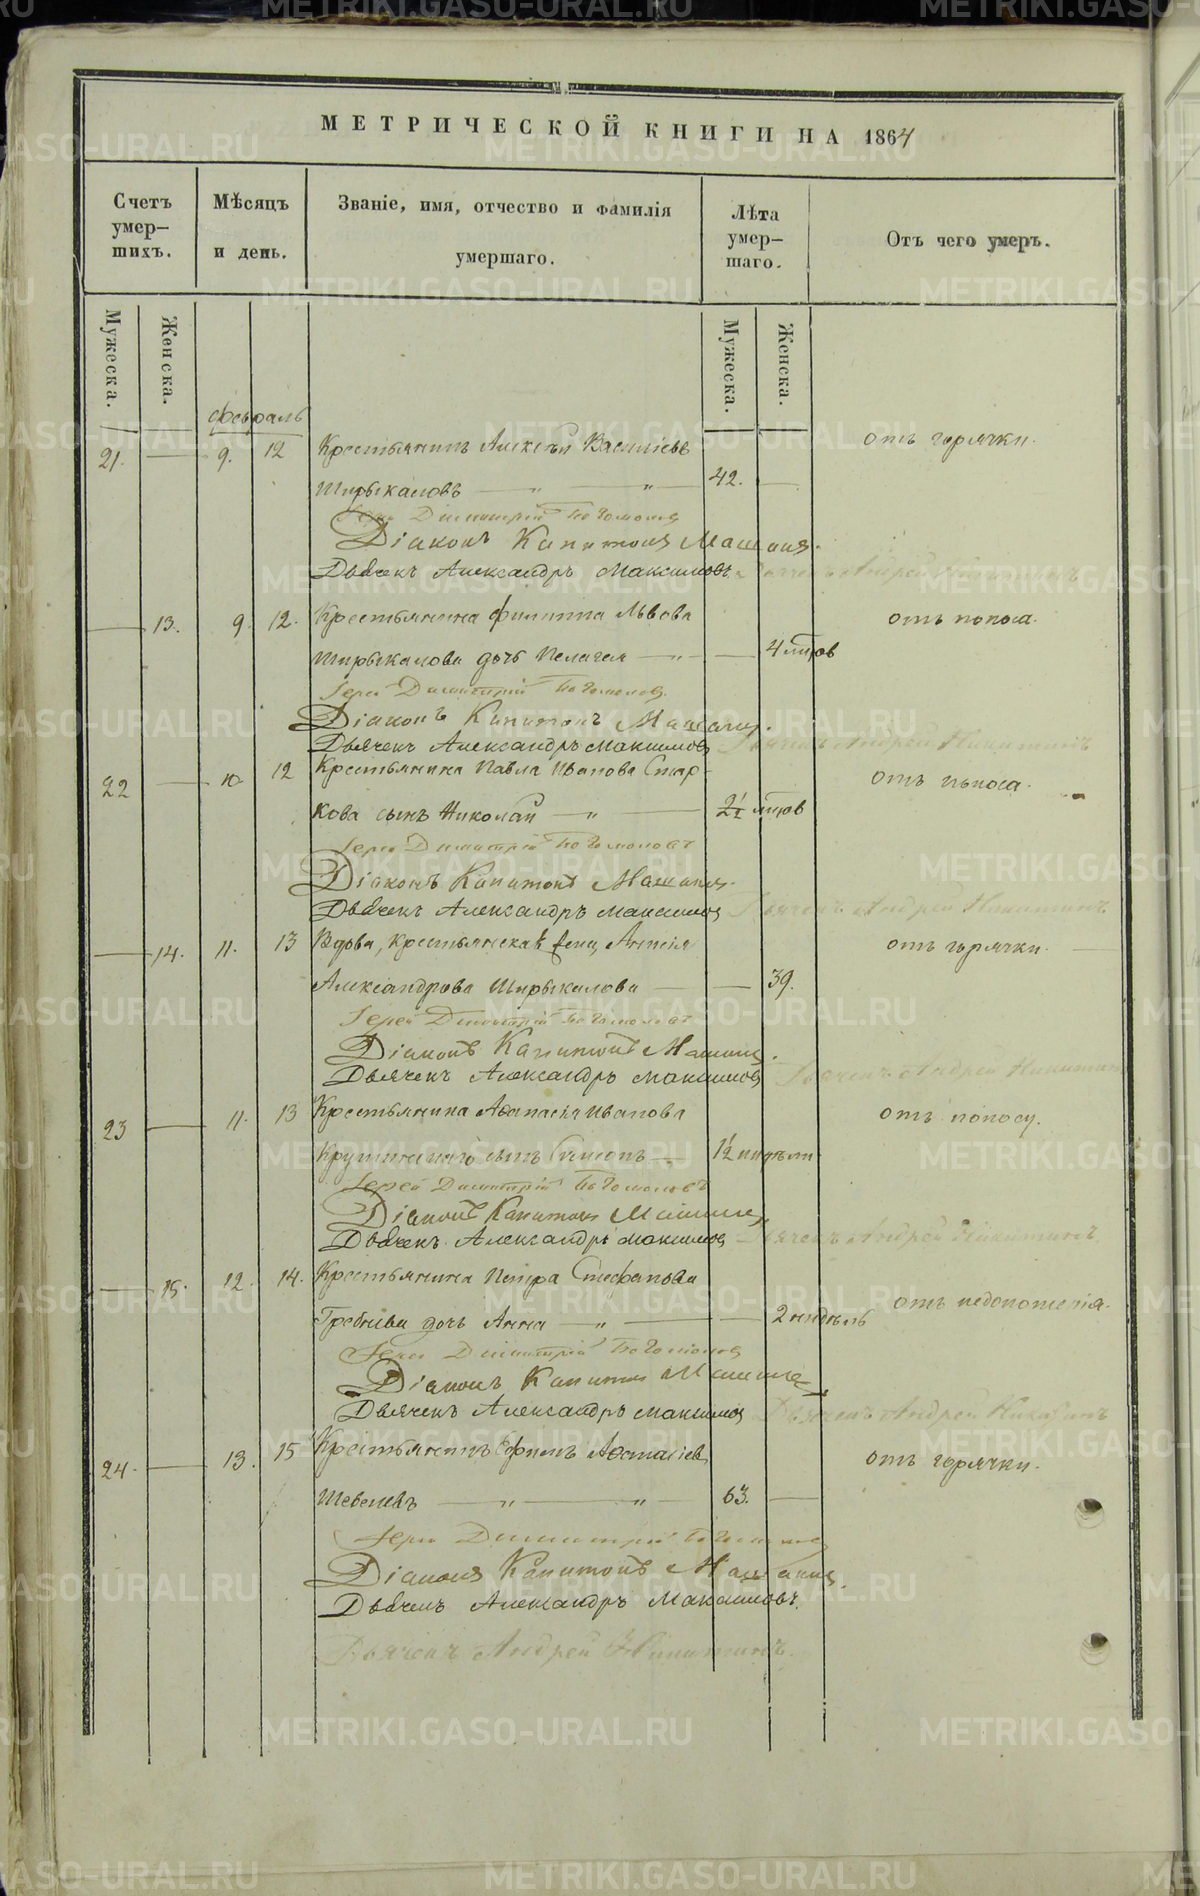 МЕТРИЧЕСКОЙ КНИГИ НА 1864
Счетъ умер–шихъ.
Мѣсяцъ и день.
Званіе, имя, отчество и фамилія умершаго.
Лѣта умер–шаго.
Отъ чего умеръ.
Мужеска.
Женска.
Мужеска.
Женска.
Февраль
21. 9. 12 Крестьянинъ Алексѣй Васильевъ отъ горячки.
Ширыкаловъ 42.
Димитрій Богомоловъ
Діаконъ Капитонъ
Дьячекъ Александръ Максимовъ Дьячекъ Андрей Никитинъ
13. 9. 12. Крестьянина Филиппа Львова отъ поноса.
Ширыкалова дочь Пелагея 4 лѣтъ
Іерей Димитрій Богомоловъ
Діаконъ Капитонъ
Дьячекъ Александръ Максимовъ Дьячекъ Андрей Никитинъ
22 10 12 Крестьянина Павла Иванова отъ поноса.
кова сынъ Николай 2½ лѣтъ
Іерей Димитрій Богомоловъ
Діаконъ Капитонъ
Дьячекъ Александръ Максимовъ Дьячекъ Андрей Никитинъ
14. 11. 13 Вдова, крестьянская жена, отъ горячки.
Александрова Ширыкалова 39.
Іерей Димитрій Богомоловъ
Діаконъ Капитонъ
Дьячекъ Александръ Максимовъ Дьячекъ Андрей Никитинъ
23 11. 13 Крестьянина Аѳанасія Иванова отъ поносу.
сынъ 1½ недѣли
Іерей Димитрій Богомоловъ
Діаконъ Капитонъ
Дьячекъ Александръ Максимовъ Дьячекъ Андрей Никитинъ
15. 12. 14. Крестьянина Петра Стефанова отъ недоношенія.
дочь Анна 2 недѣль
Димитрій Богомоловъ
Діаконъ Капитонъ
Дьячекъ Александръ Максимовъ Дьячекъ Андрей Никитинъ
24. 13. 15 Крестьянинъ Ефимъ отъ горячки.
Шевелевъ 63.
Іерей Димитрій Богомоловъ
Діаконъ Капитонъ
Дьячекъ Александръ Максимовъ.
Дьячекъ Андрей Никитинъ.
METRIKI.GASO-URAL.RU